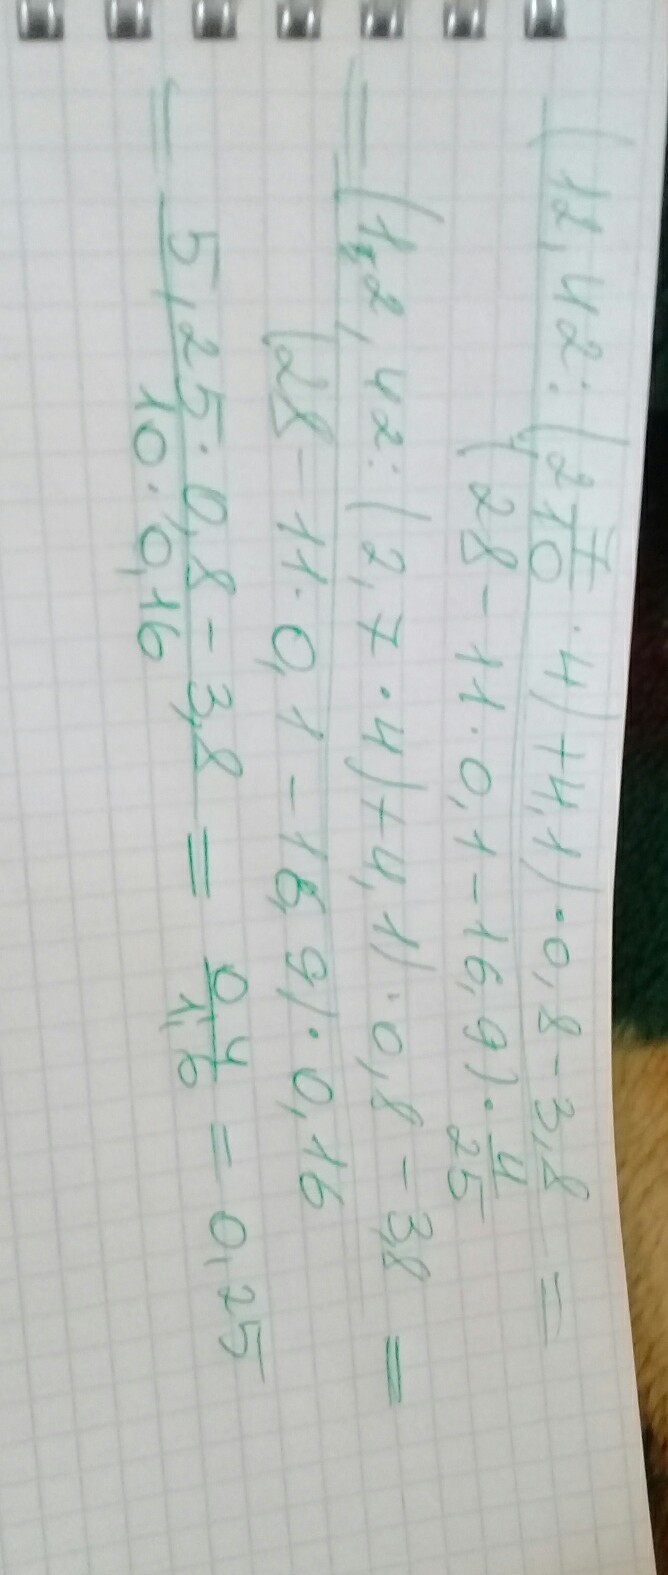 (12,42:(2 7/10 · 4)+4,1)·0,8-3,8 =
(28-11·0,1-16,9)· 4/25
= (12,42:(2,7·4)+4,1)·0,8-3,8 =
(28-11·0,1-16,9)·0,16
= 5,25·0,8-3,8 = 0,4 = 0,25
10·0,16 1,6